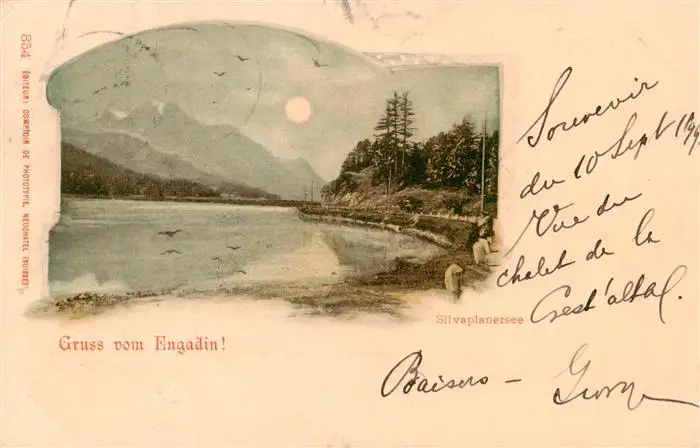 854 ÉDITEUR: COMPTOIR DE PHOTOTYPIE, NEUCHATEL (SUISSE)
Souvenir
du 10 Sept
Vue du
chalet de la
Crest'alta.
Silvaplanersee
Gruss vom Engadin!
Baisers –